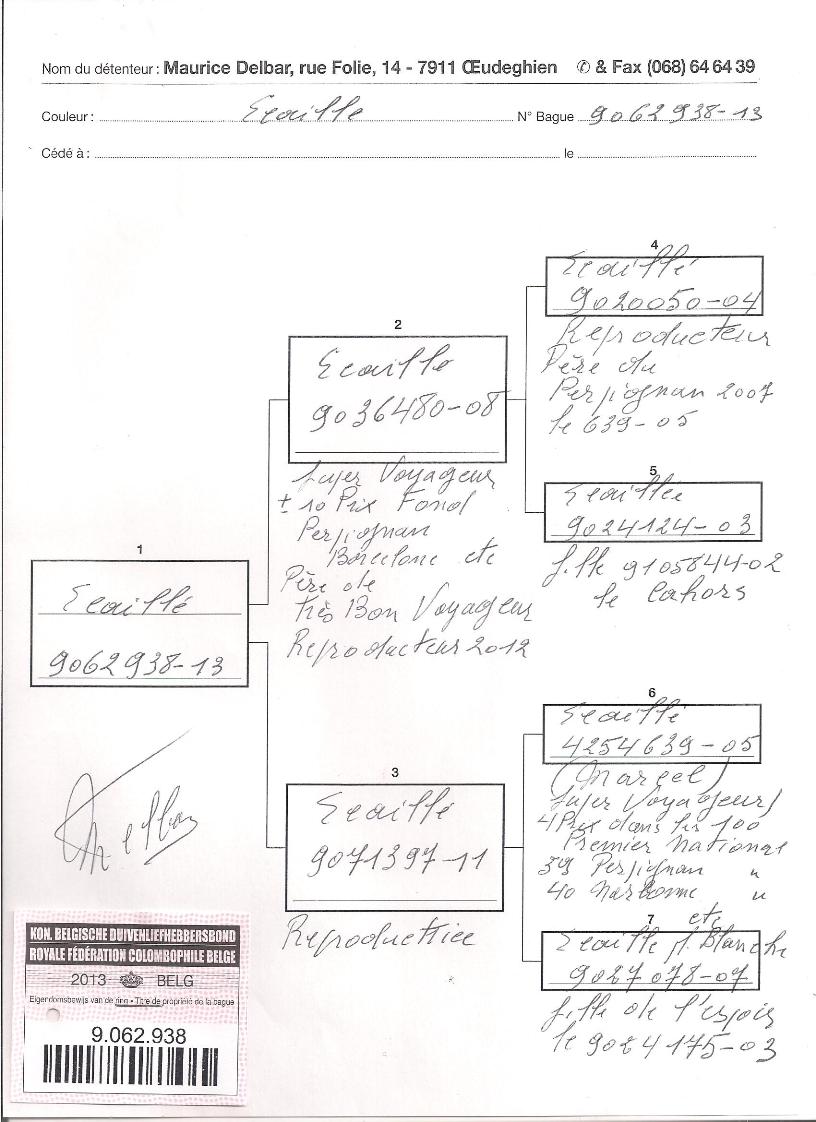 Nom du détenteur : Maurice Delbar, rue Folie, 14 - 7911 Œudeghien ✆ & Fax (068) 64 64 39
Couleur : Ecaillé N° Bague 9062938-13
Cédé à : le
4
Ecaillé
9020050-04
Reproducteur
Père du
Perpignan 2007
le 639-05
2
Ecaillé
9036480-08
Super Voyageur
± 10 Prix Fond
Perpignan
Barcelone etc
Père de
très Bon Voyageur
Reproducteur 2012
5
Ecaillée
9024124-03
fille 9105844-02
le Cahors
1
Ecaillé
9062938-13
6
Ecaillé
4254639-05
(Marcel)
Super Voyageur
4 Prix dans les 100
Premier National
39 Perpignan "
40 Narbonne "
etc
3
Ecaillé
9071397-11
Reproductrice
7
Ecaillé pl. Blanche
9027078-07
fille de l'espoir
le 9024175-03
Delbar
KON. BELGISCHE DUIVENLIEFHEBBERSBOND
ROYALE FÉDÉRATION COLOMBOPHILE BELGE
2013 BELG
Eigendomsbewijs van de ring • Titre de propriété de la bague
9.062.938